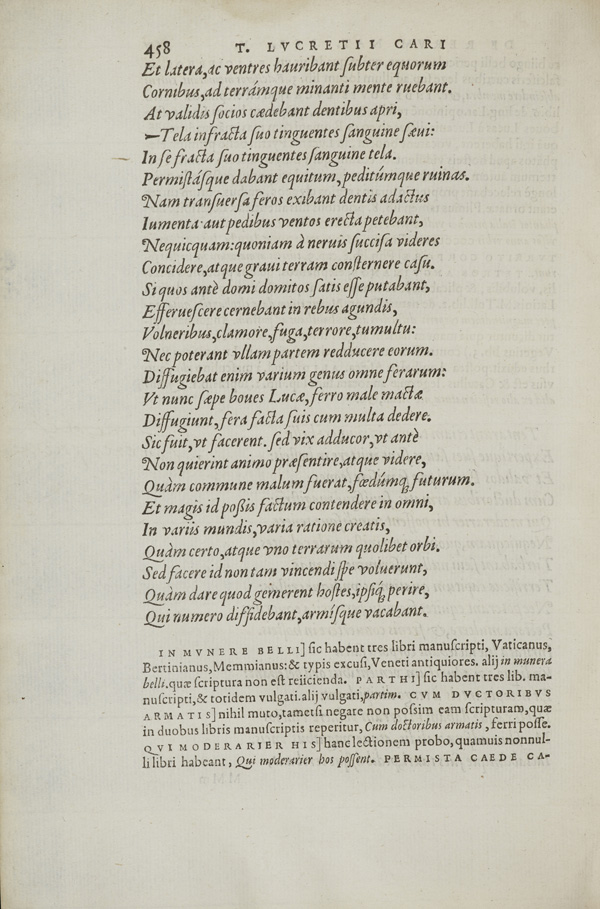 458 T. LVCRETII CARI
Et latera, ac ventres hauribant ſubter equorum
Cornibus, ad terrámque minanti mente ruebant.
At validis ſocios cædebant dentibus apri,
—Tela infracta ſuo tinguentes ſanguine ſæui:
In ſe fracta ſuo tinguentes ſanguine tela.
Permiſtáſque dabant equitum, peditúmque ruinas.
Nam tranſuerſa feros exibant dentis adactus
Iumenta·aut pedibus ventos erecta petebant,
Nequicquam: quoniam à neruis ſucciſa videres
Concidere, atque graui terram conſternere caſu.
Si quos antè domi domitos ſatis eſſe putabant,
Efferueſcere cernebant in rebus agundis,
Volneribus, clamore, fuga, terrore, tumultu:
Nec poterant vllam partem redducere eorum.
Diffugiebat enim varium genus omne ferarum:
Vt nunc ſæpe boues Lucæ, ferro male mactæ
Diffugiunt, fera facta ſuis cum multa dedere.
Sic fuit, vt facerent. ſed vix adducor, vt antè
Non quierint animo præſentire, atque videre,
Quàm commune malum fuerat, fœdúmq; futurum.
Et magis id poßis factum contendere in omni,
In variis mundis, varia ratione creatis,
Quàm certo, atque vno terrarum quolibet orbi.
Sed facere id non tam vincendi ſpe voluerunt,
Quàm dare quod gemerent hoſtes, ipſiq́; perire,
Qui numero diffidebant, armíſque vacabant.
IN MVNERE BELLI] ſic habent tres libri manuſcripti, Vaticanus,
Bertinianus, Memmianus: & typis excuſi, Veneti antiquiores. alij in munera
belli. quæ ſcriptura non eſt reiicienda. PARTHI] ſic habent tres lib. ma-
nuſcripti, & totidem vulgati. alij vulgati, partim. CVM DVCTORIBVS
ARMATIS] nihil muto, tametſi negare non poſſim eam ſcripturam, quæ
in duobus libris manuſcriptis reperitur, Cum doctoribus armatis, ferri poſſe.
QVI MODERARIER HIS] hanc lectionem probo, quamuis nonnul-
li libri habeant, Qui moderarier hos poſſent. PERMISTA CAEDE CA-